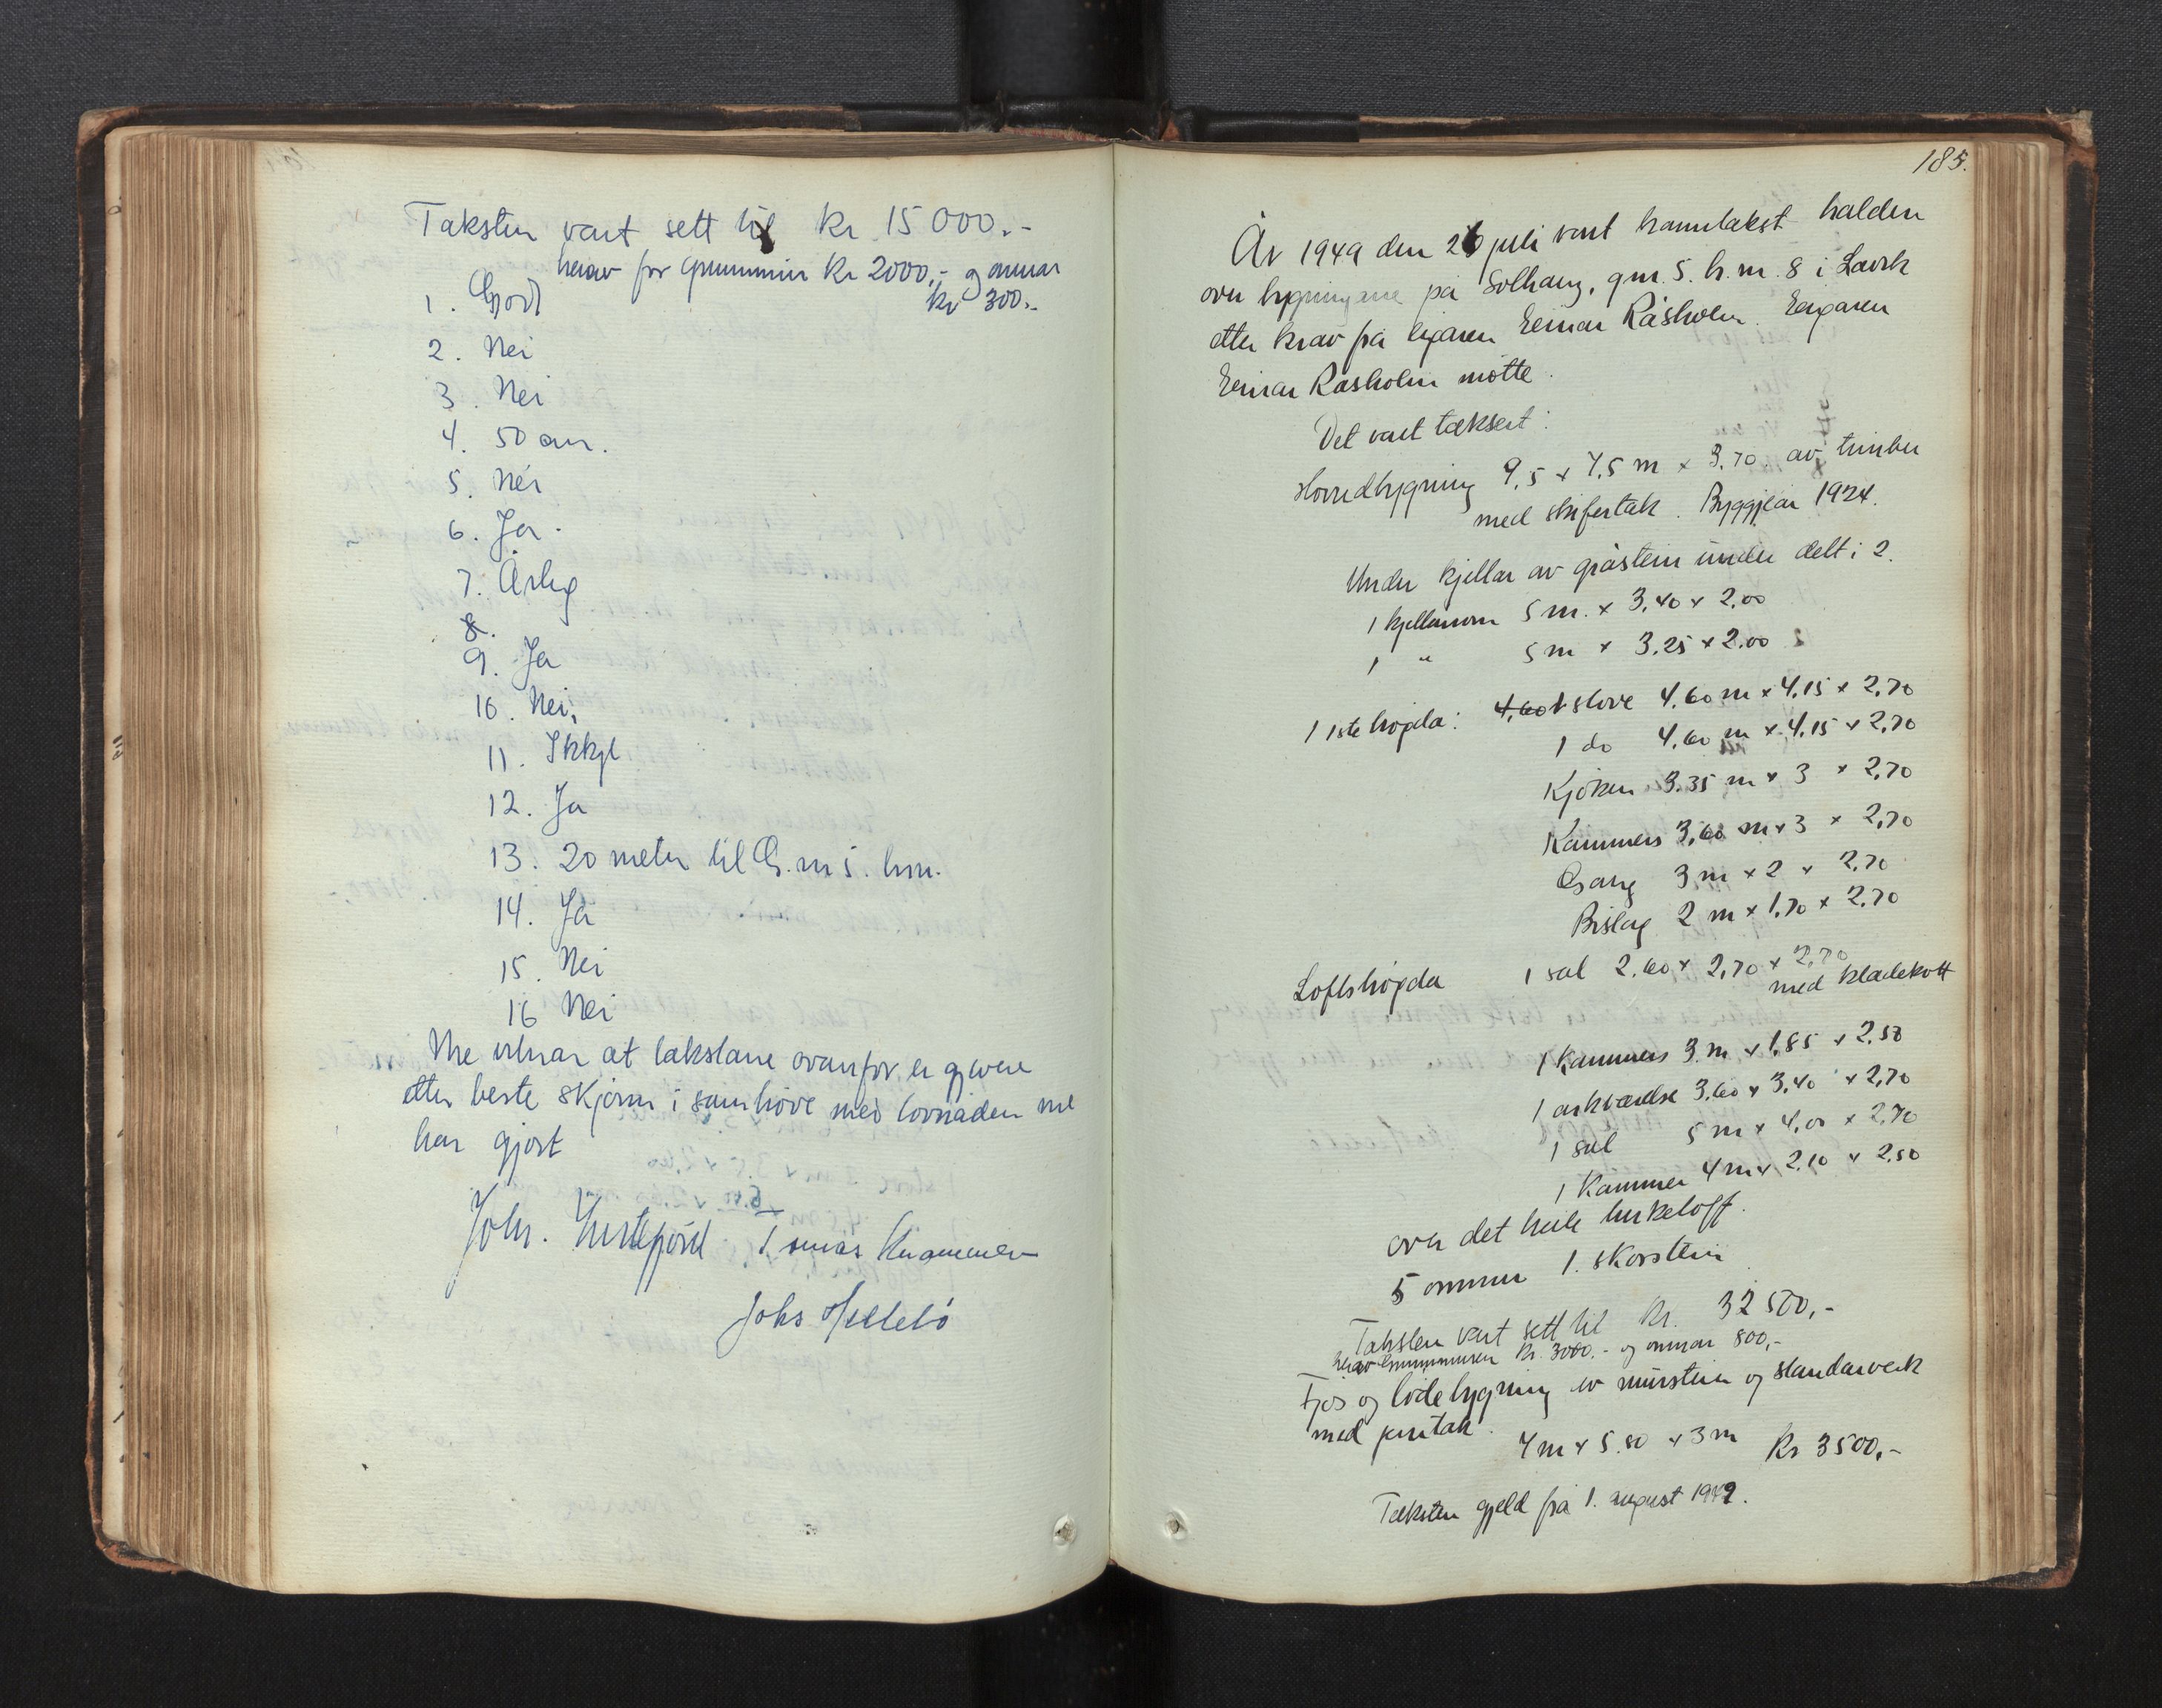 Taksten vart sett til kr 15000.-
herav for grunnmur kr 2000,- og omnar
kr 300.-
1. Godt
2. Nei
3. Nei
4. 50 cm.
5. Nei
6. Ja.
7. Årleg
8.
9. Ja
10. Nei,
11. Ikkje
12. Ja
13. 20 meter til G.nr 5. bnr.
14. Ja
15. Nei
16 Nei
Me vitnar at takstane ovanfor er gjevne
etter beste skjønn i samhöve med lovnaden me
har gjort
Johs Hellebö
185.
År 1949 den 26 juli vart branntakst halden
over bygningane på Solhaug, gnr. 5. br.nr. 8 i Lavik
etter krav frå eigaren Einar Råsholm. Eigaren
Einar Råsholm møtte.
Det vart taksert:
Hovudbygning 9,5 x 7,5 m x 3,70 av timber
med skifertak. Byggjeår 1924.
Under kjellar av gråstein under delt i 2.
1 kjellarrom 5 m. x 3,40 x 2,00
1 " 5 m x 3,25 x 2,00
1 1ste høgda: 4,60 1 stove 4,60 m x 4,15 x 2,70
1 do 4,60 m x 4,15 x 2,70
Kjøken 3.35 m x 3 x 2,70
Kammers 3,60 m x 3 x 2,70
Gang 3 m x 2 x 2,70
Bislag 2 m x 1,70 x 2,70
Loftshøgda 1 sal 2,60 x 2,70 x 2,70
med kladekott
1 Kammers 3 m x 1,85 x 2,50
1 arkværelse 3,60 x 3,40 x 2,70
1 sal 5 m x 4,00 x 2,70
1 Kammer 4 m x 2,10 x 2,50
over det heile turkeloft.
5 omnar 1. skorstein
Taksten vart sett til kr. 32500,-
herav grunnmuren kr. 3000.- og omnar 800,-
Fjos og lödebygning av murstein og standarverk
med
7 m x 5.80 x 3 m kr 3500,-
Taksten gjeld frå 1. august 1949.